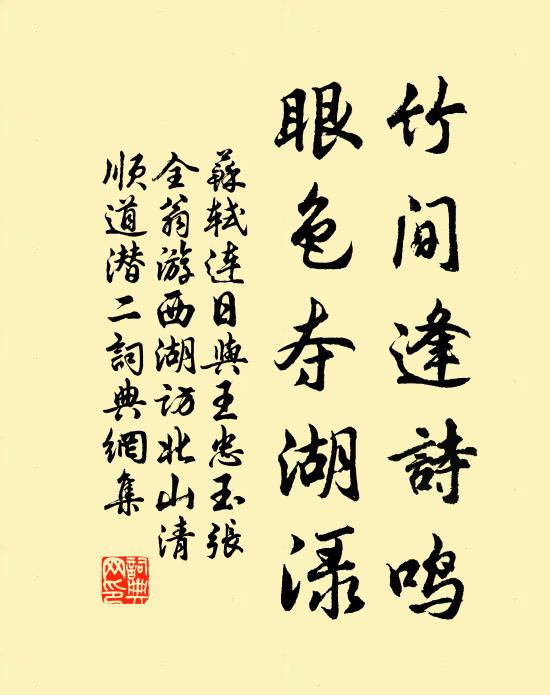 竹间逢詩鸣
眼色夺湖渌
蘇轼连日與王忠玉張
全翁游西湖访北山清
顺道潜二詞典網集
詞典网印